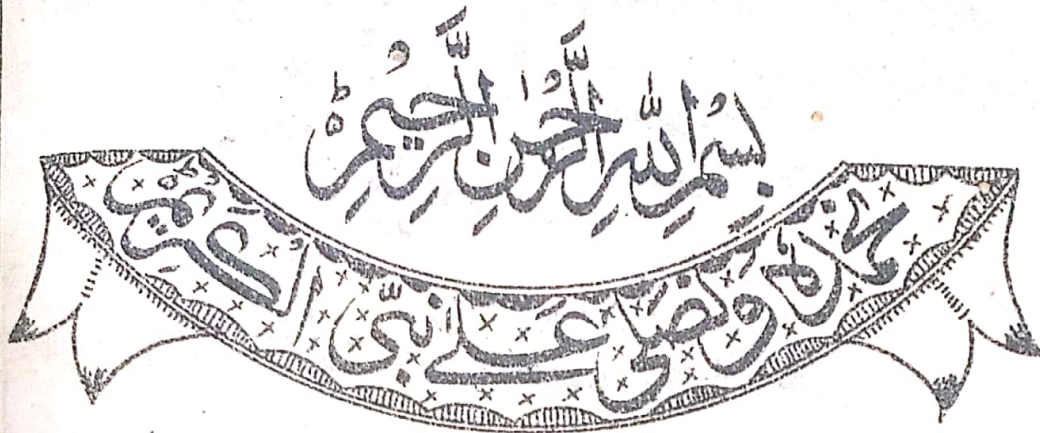 بِسْمِ اللّٰهِ الرَّحْمٰنِ الرَّحِيْمِ ہ
نحمدہ و نصلی علیٰ نبیّ الکریم